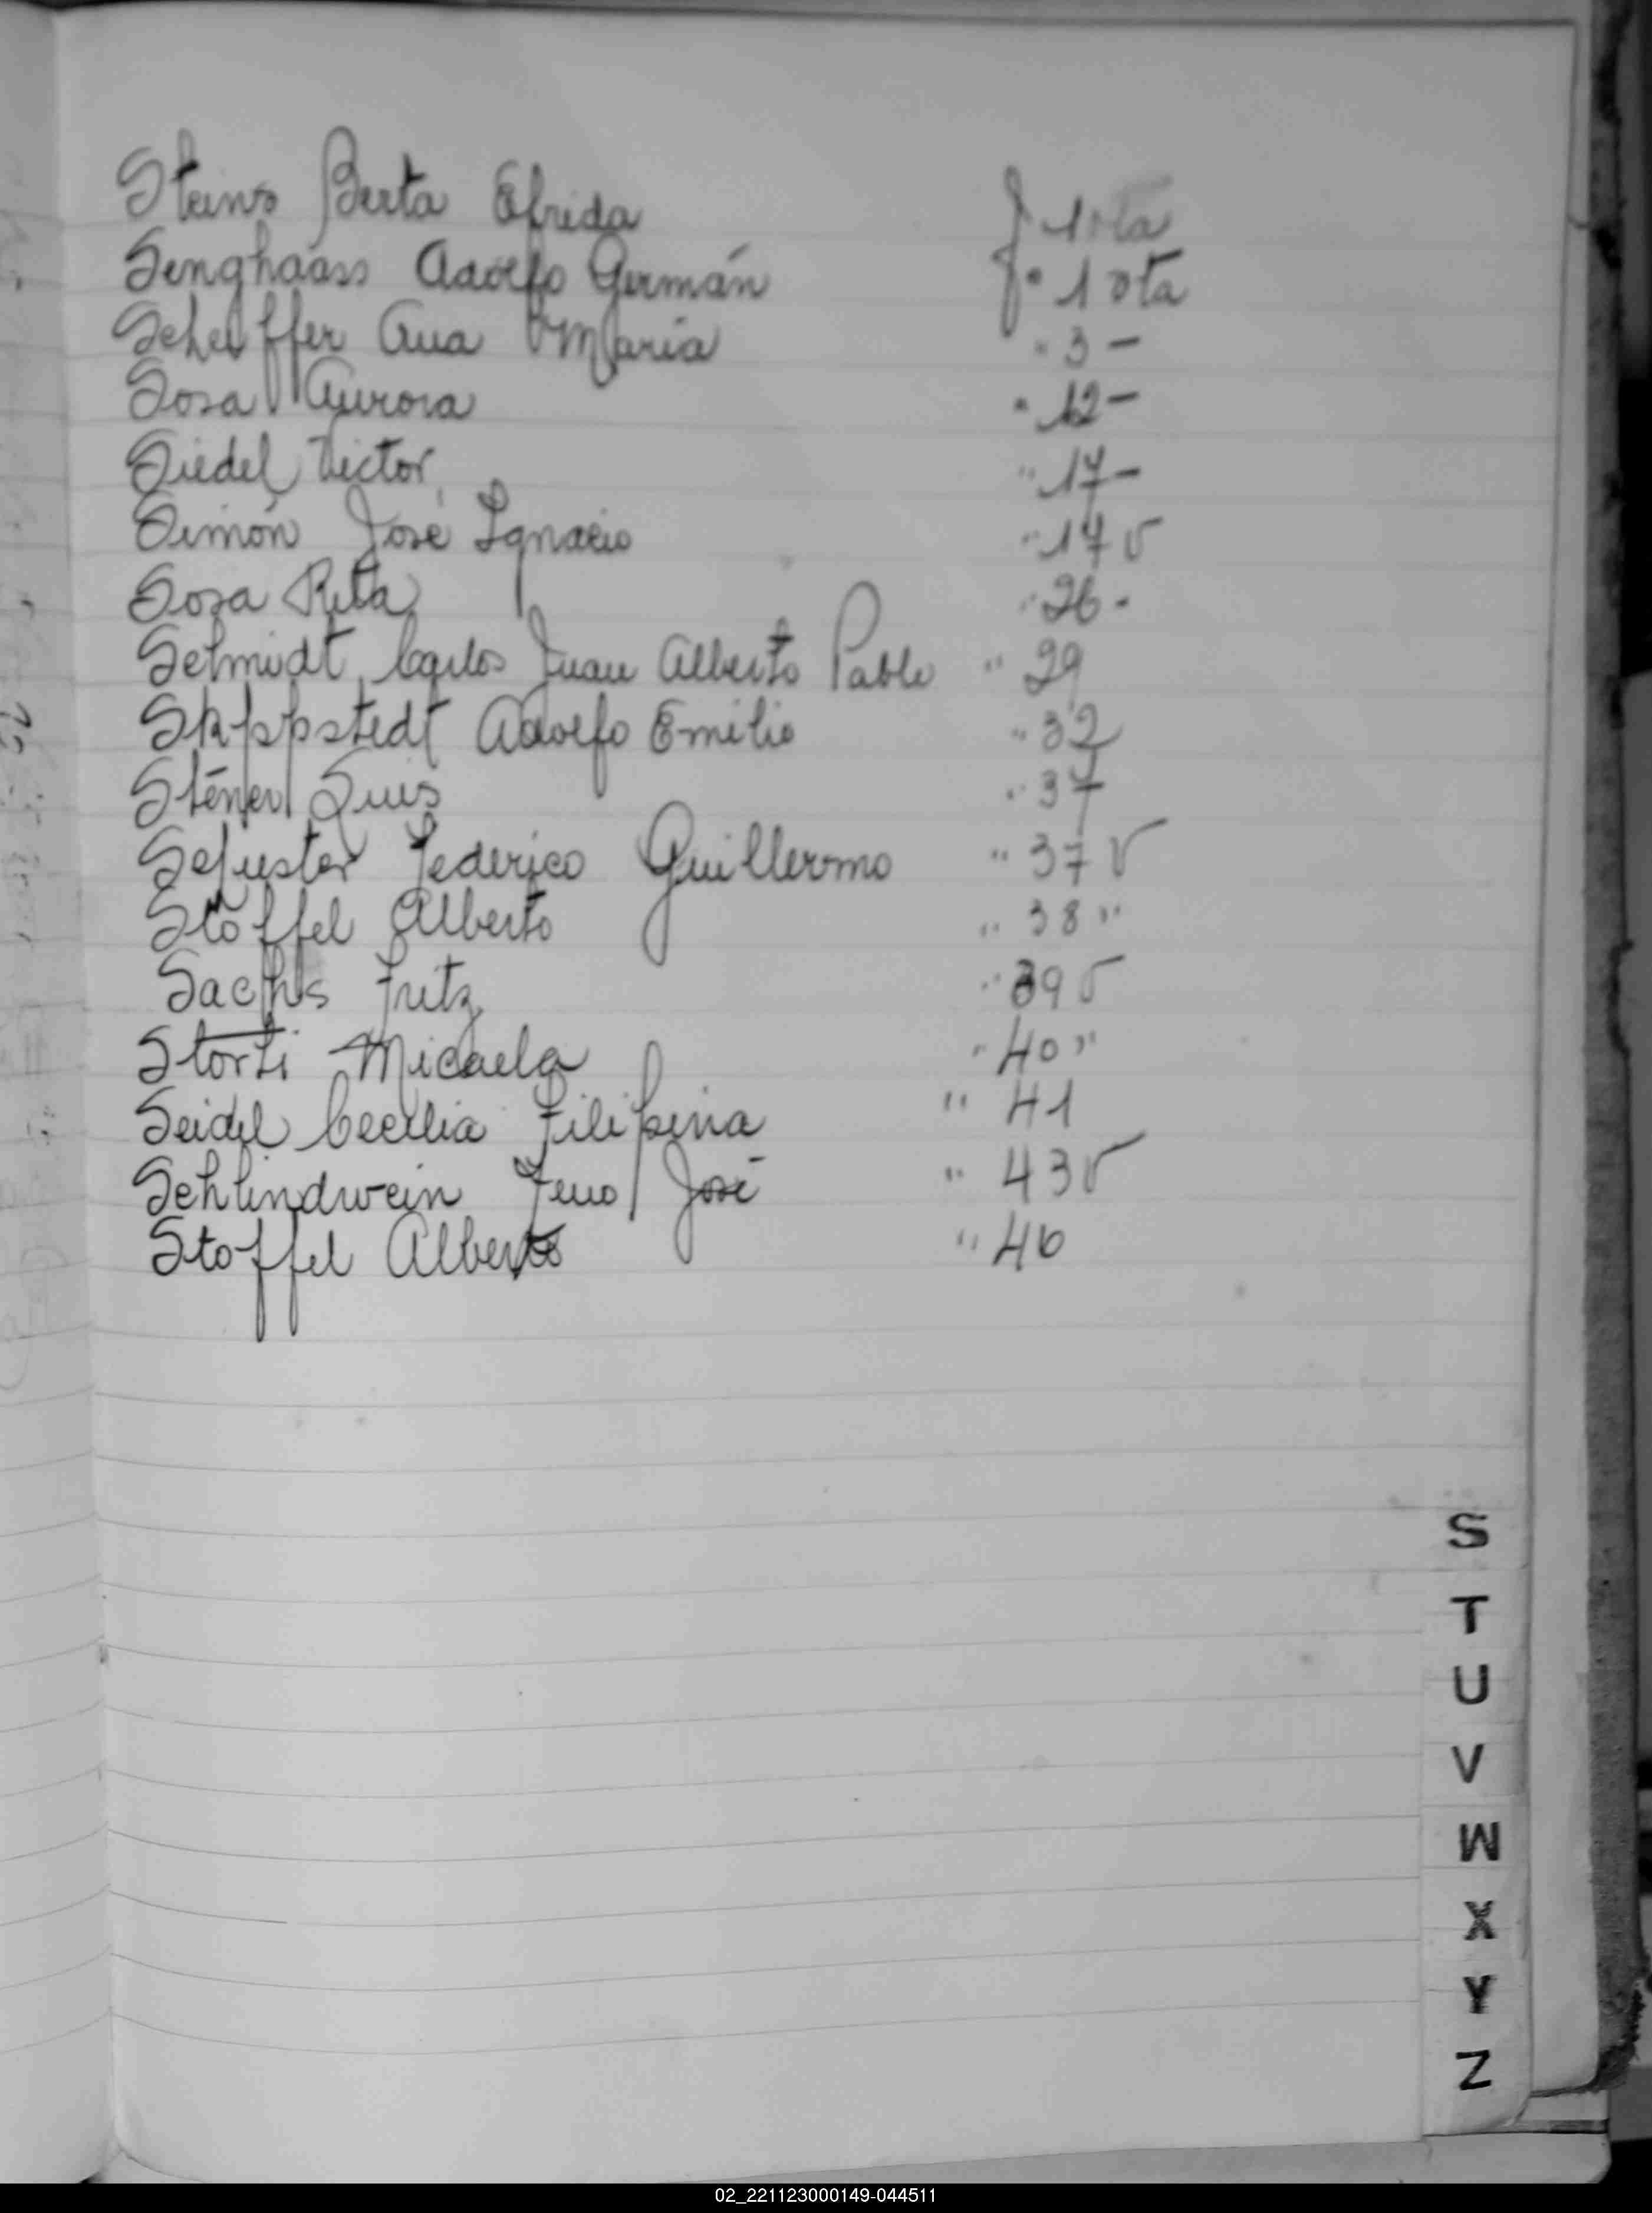 Steins Berta Efrida f 1 vta
Senghaass Adolfo Germán f° 1 vta
Scheiffer Ana Maria " 3 -
Sosa Aurora " 12 -
Siedel Victor " 17 -
Simón José Ignacio " 17 v
Sosa Rita " 26 -
Schmidt Carlos Juan Alberto Pablo " 29
Skppstedt Adolfo Emilio " 32
Sténer Luis " 37
Schuster Federico Guillermo " 37 v
Stoffel Alberto " 38 "
Sachs Fritz " 39 v
Storti Micaela " 40 "
Seidel Cecilia Filipina " 41
Schlindwein José " 43 v
Stoffel Alberto " 46
S
T
U
V
W
X
Y
Z
02_221123000149-044511